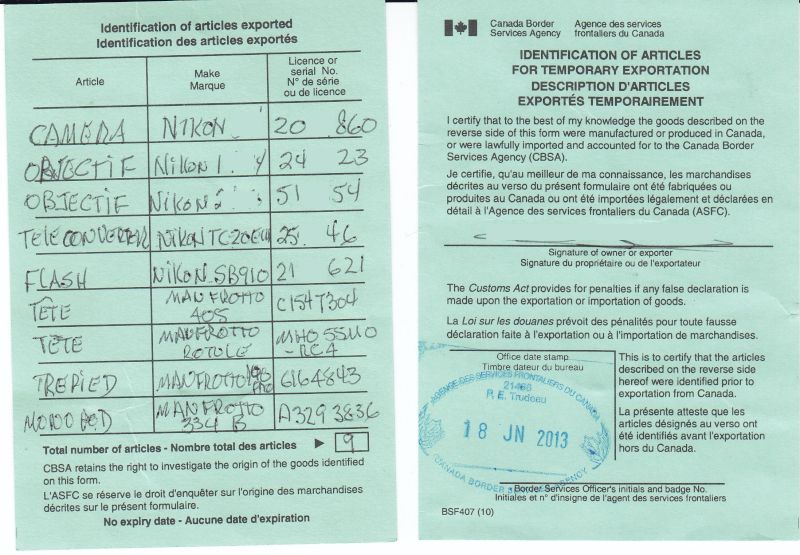 Identification of articles exported
Identification des articles exportés
Article
Make
Marque
Licence or
serial No.
N° de série
ou de licence
CAMERA NIKON 20 860
OBJECTIF NIKON 24 23
OBJECTIF NIKON 51 54
TELECONVERTER NIKON TC20EIII 25 46
FLASH NIKON SB910 21 621
TÊTE MANFROTTO 405 C154T304
TÊTE MANFROTTO ROTULE MH055M0-RC4
TREPIED MANFROTTO 190 PRO 6164843
MONOPOD MANFROTTO 334 B A3293836
Total number of articles - Nombre total des articles 9
CBSA retains the right to investigate the origin of the goods identified
on this form.
L'ASFC se réserve le droit d'enquêter sur l'origine des marchandises
décrites sur le présent formulaire.
No expiry date - Aucune date d'expiration
Canada Border
Services Agency
Agence des services
frontaliers du Canada
IDENTIFICATION OF ARTICLES
FOR TEMPORARY EXPORTATION
DESCRIPTION D'ARTICLES
EXPORTÉS TEMPORAIREMENT
I certify that to the best of my knowledge the goods described on the
reverse side of this form were manufactured or produced in Canada,
or were lawfully imported and accounted for to the Canada Border
Services Agency (CBSA).
Je certifie, qu'au meilleur de ma connaissance, les marchandises
décrites au verso du présent formulaire ont été fabriquées ou
produites au Canada ou ont été importées légalement et déclarées en
détail à l'Agence des services frontaliers du Canada (ASFC).
Signature of owner or exporter
Signature du propriétaire ou de l'exportateur
The Customs Act provides for penalties if any false declaration is
made upon the exportation or importation of goods.
La Loi sur les douanes prévoit des pénalités pour toute fausse
déclaration faite à l'exportation ou à l'importation de marchandises.
Office date stamp
Timbre dateur du bureau
AGENCE DES SERVICES FRONTALIERS DU CANADA
21466
P. E. Trudeau
18 JN 2013
CANADA BORDER SERVICES AGENCY
This is to certify that the articles
described on the reverse side
hereof were identified prior to
exportation from Canada.
La présente atteste que les
articles désignés au verso ont
été identifiés avant l'exportation
hors du Canada.
Border Services Officer's initials and badge No.
Initiales et n° d'insigne de l'agent des services frontaliers
BSF407 (10)